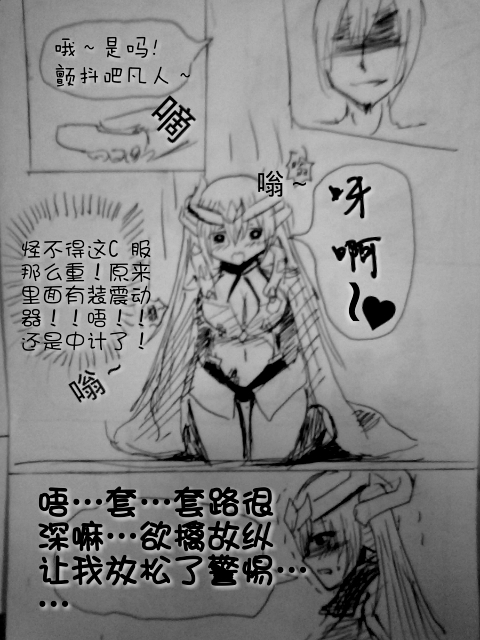 哦～是吗！
颤抖吧凡人～
嘀
嗡～
嗡
呀
啊
～♥
怪不得这C 服
那么重！原来
里面有装震动
器！！唔！！
还是中计了！
嗡～
唔…套…套路很
深嘛…欲擒故纵
让我放松了警惕…
…